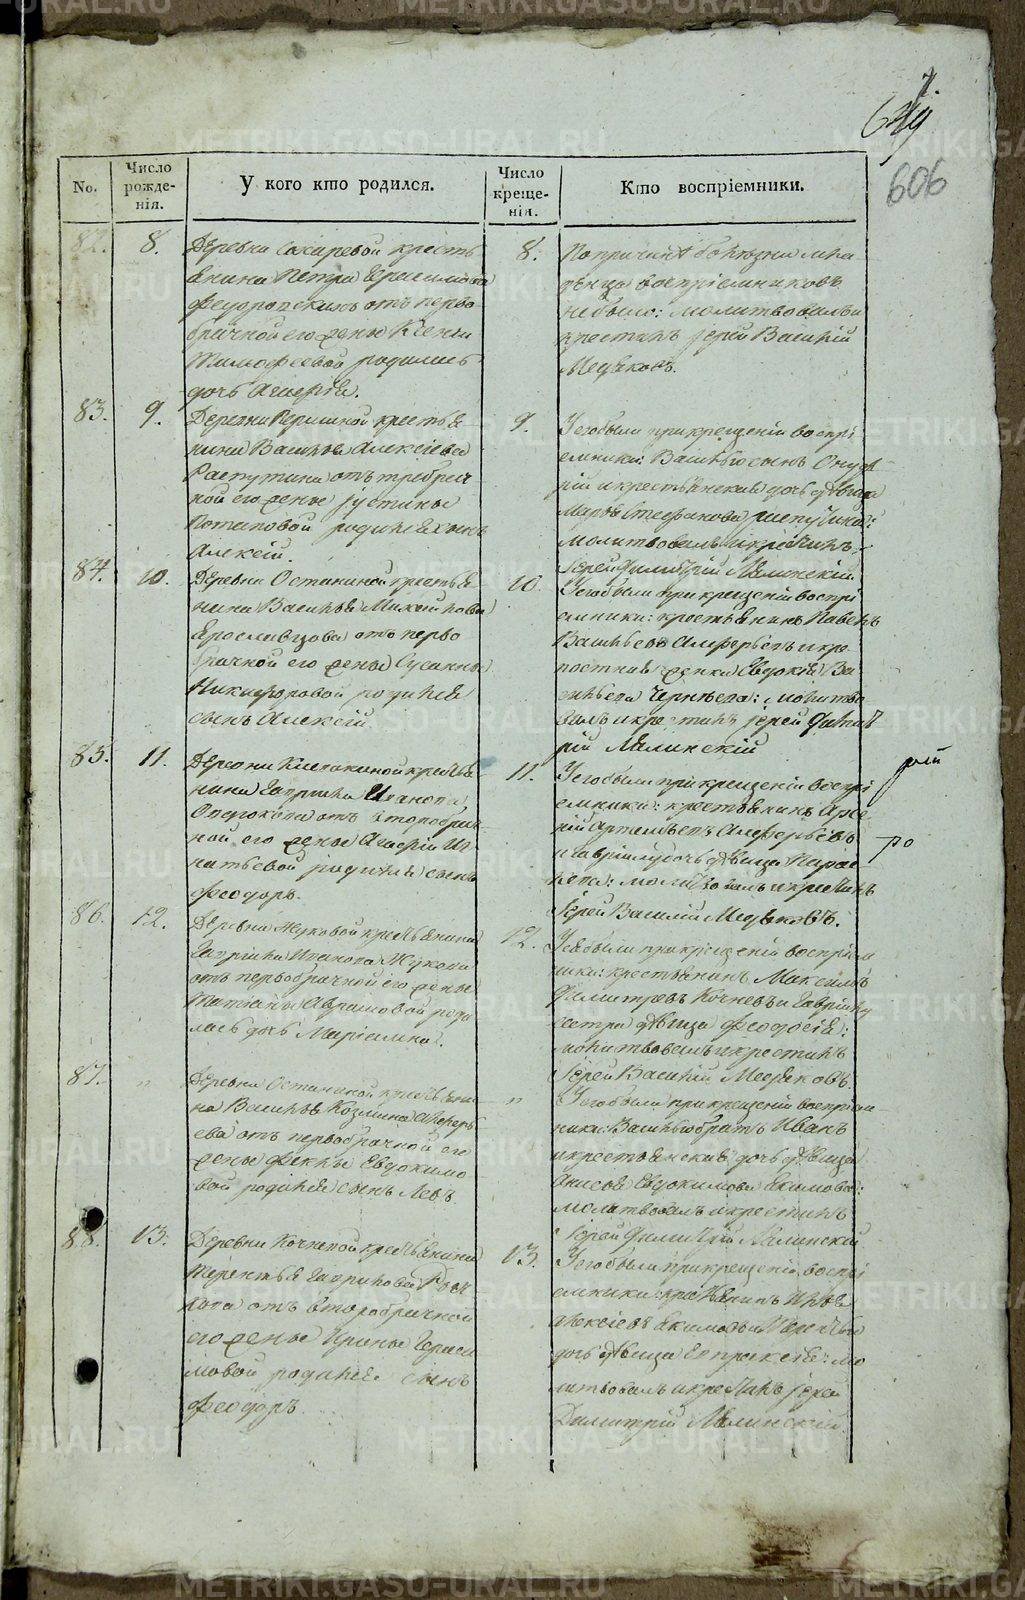 7.
649
606
No.
Число рожденія.
У кого кто родился.
Число крещенія.
Кто воспріемники.
82.
8.
Деревни Сохаревой кресть
янина Петра Герасимова
отъ перво
брачной его жены Ксеніи
Тимофеевой родилась
дочь
8.
По причинѣ болѣзни мла
денца воспріемниковъ
небыло: молитвовалъ и
крестилъ Іерей Василій
Медяковъ.
83.
9.
Деревни крестья
нина Василья Алексіева
Распутина отъ требрач
ной его жены Іустины
Потаповой родился сынъ
Алексій.
9.
У гобыли при крещеніи воспрі
емники: Васильевъ сынъ Онуф
рій и крестьянская дочь дѣвица
Марѳа Стефанова Распутина:
молитвовалъ и крестилъ
Іерей Димитрій Малинскій.
84.
10.
Деревни Останиной крестья
нина Василья Михайлова
Ярославцова отъ перво
брачной его жены Сусанны
Никифоровой родился
сынъ Алексій.
10.
У гобыли при крещеніи воспрі
емники: крестьянинъ Павелъ
Васильевъ Алферьевъ и кре
женка Евдокія Ва
сильева : молитво
валъ и крестилъ Іерей Димит
рій Малинскій
85.
11.
Деревни крестья
нина Гаврила Иванова
отъ второбрач
ной его жены Агафіи Иг
натьевой родился сынъ
Феодоръ.
11.
У гобыли при крещеніи воспрі
емники: крестьянинъ Арсе
ній Артемьевъ Алферьевъ
дочь дѣвица Парас
кева: молитвовалъ и крестилъ
Іерей Василій Медяковъ.
86.
12.
Деревни Жуковой крестьянина
Гаврила Иванова Жукова
отъ первобрачной его жены
Татіаны Аврамовой роди
лась дочь Маріамна.
12.
У ей были при крещеніи воспріем
ники: крестьянинъ Максимъ
Димитревъ Кочневъ и Гаврилы
сестра дѣвица Феодосія:
молитвовалъ и крестилъ
Іерей Василій Медяковъ.
87.
"
Деревни Останиной крестьяни
на Василья Козмина Алферь
ева отъ первобрачной его
жены Феклы Евдокимо
вой родился сынъ Левъ.
"
У гобыли при крещеніи воспріем
ники: Васильевъ братъ Иванъ
и крестьянская дочь дѣвица
Анисья Евдокимова Екимова:
молитвовалъ и крестилъ
Іерей Димитрій Малинскій
88.
13.
Деревни Кочневой крестьянина
Терентья Гаврилова Коч
нева отъ второбрачной
его жены Ирины Гераси
мовой родился сынъ
Феодоръ.
13.
У гобыли при крещеніи воспрі
емники: крестьянинъ Илья
Алексіевъ Екимовъ и
дочь дѣвица Евпраксія: мо
литвовалъ и крестилъ Іерей
Димитрій Малинскій.
METRIKI.GASO-URAL.RU